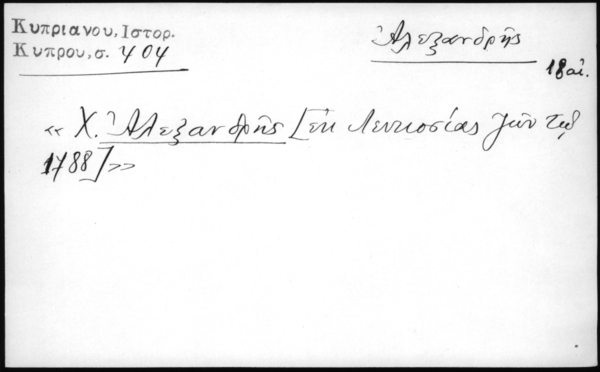 Κυπριανου, Ιστορ.
Κυπρου, σ. 404
Ἀλεξανδρῆς
18 αἰ.
« Χ. Ἀλεξανδρῆς [ἐκ Λευκοσίας ζῶν τῷ
1788] »